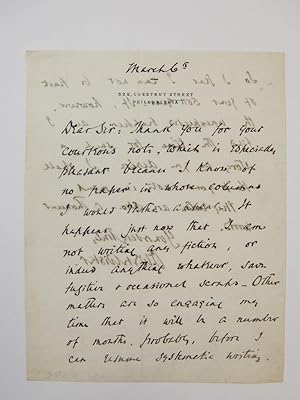 March 6th
CHESTNUT STREET
PHILADELPHIA
Dear Sir: Thank you for your
courteous note, which is especially
pleasant because I know of
no paper in whose columns
I would rather appear. It
happens just now that I am
not writing any fiction, or
indeed anything whatever, save
fugitive & occasional scraps. Other
matters are so engaging my
time that it will be a number
of months, probably, before I
can resume systematic writing.